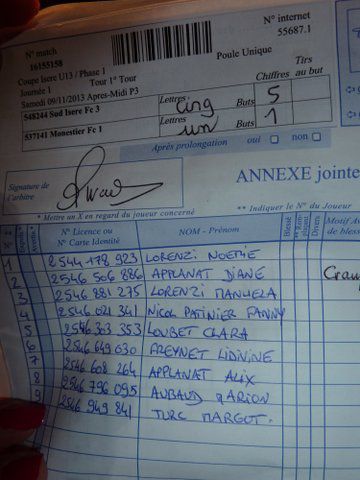 N° match
16155158
N° internet
55687.1
Coupe Isere U13 / Phase 1
Poule Unique
Journée 1 Tour 1° Tour
Samedi 09/11/2013 Apres-Midi P3
Lettres Chiffres Titrs au but
548244 Sud Isere Fc 3 cinq Buts 5
537141 Monestier Fc 1 Lettres un Buts 1
Après prolongation oui non
Signature de l'arbitre
ANNEXE jointe
* Mettre un X en regard du joueur concerné
** Indiquer le N° du Joueur
N° Expuls. Avertis. N° Licence ou N° Carte Identité NOM - Prénom Blessé Divers Motif
de bless
1 2544 178 923 LORENZI NOEMIE
2 2546 506 886 APPLANAT DIANE
3 2546 881 275 LORENZI MANUELA
4 2546 021 341 NICOL PATINIER FANNY
5 2546 303 353 LOUBET CLARA
6 2546 649 630 FREYNET LIDIVINE
7 2546 608 264 APPLANAT ALIX
8 2546 796 095 AUBAUD MARION
9 2546 949 841 TURC MARGOT.
Cram